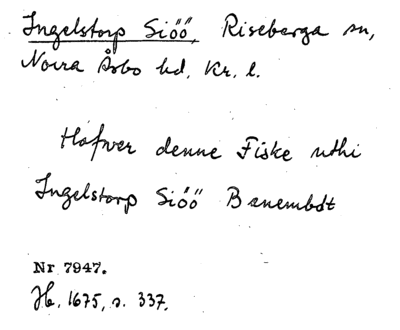 Ingelstorp Siöö, Riseberga sn,
Norra Åsbo hd, Kr. l.
Hafwer denne Fiske uthi
Ingelstorp Siöö Benembdt
Nr 7947.
Jb. 1675, s. 337.